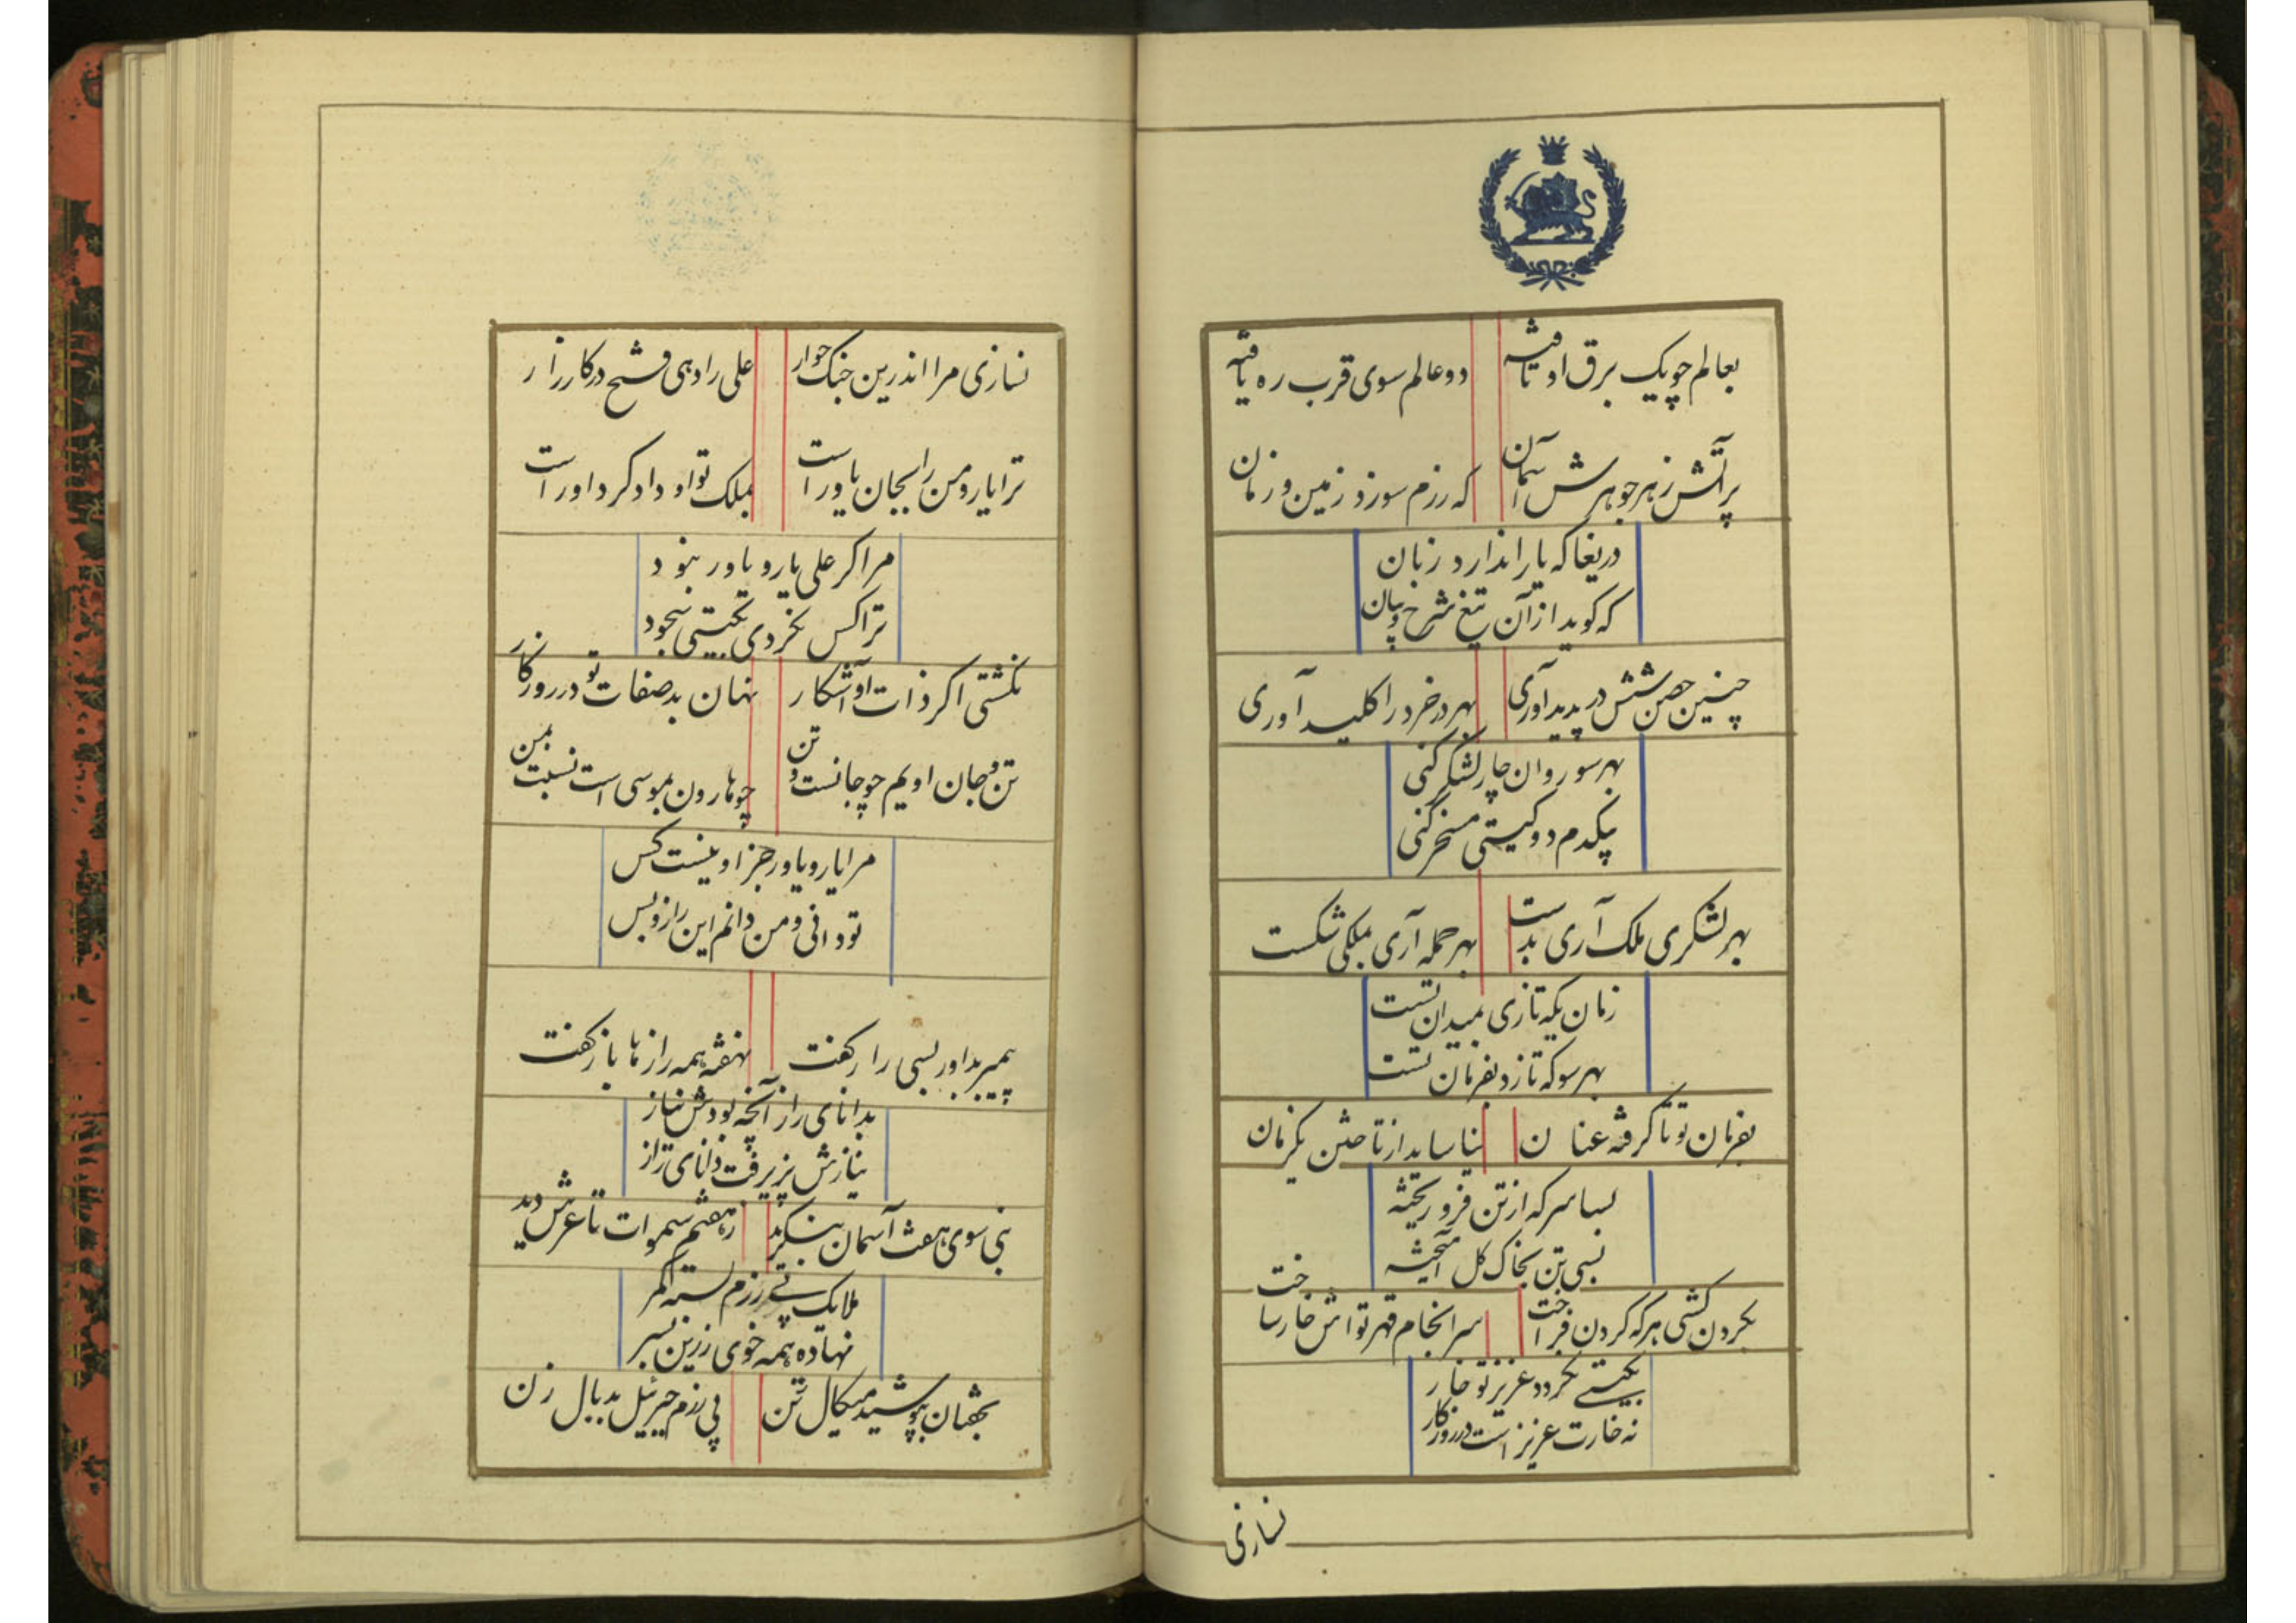 بعالم چو یک برق او تافته
دو عالم سوی قرب ره یافته
پر آتش ز هر جوهرش آسمان
که رزم سوزد زمین و زمان
دریغا که یارا ندارد زبان
که کوید از آن تیغ شرح و بیان
چنین حصن شش در پدید آوری
بهر در خرد را کلید آوری
بهر سو روان چار لشکر کنی
بیکدم دو کیتی مسخر کنی
بهر لشکری ملک آری بدست
بهر حمله آری بملکی شکست
زمان یکه تازی بمیدان تست
بهر سو که تازد بفرمان تست
بفرمان تو تا کرفته عنان
نیاساید از تاختن یکزمان
بسا سر که از تن فرو ریخته
بسی تن بخاک کل آمیخته
بکردن کشی هر که کردن فراخت
سرانجام قهر تواش خار ساخت
بکیتی نکردد عزیز تو خار
نه خارت عزیز است در روزکار
نسازی
نسازی مرا اندرین جنک خوار
علی را دهی فتح در کارزار
ترا یار و من را بجان یاور است
بملک تو او دادکر داور است
مرا کر علی یار و یاور نبود
ترا کس نکردی بکیتی سجود
نکشتی اکر ذات او آشکار
نهان بد صفات تو در روزکار
تن و جان اویم چو جانست و تن
چو هارون بموسی است نسبت بمن
مرا یار و یاور جز او نیست کس
تو دانی و من دانم این راز و بس
پیمبر بداور بسی راز کفت
نهفته همه رازها باز کفت
بدانای راز آنچه بودش نیاز
نیازش پزیرفت دانای راز
نبی سوی هفت آسمان بنکرید
ز هفتم سموات تا عرش دید
ملایک پی رزم بسته کمر
نهاده همه خوی زرین بسر
بخفتان بپوشید میکال تن
پی رزم جبرئیل بد بال زن